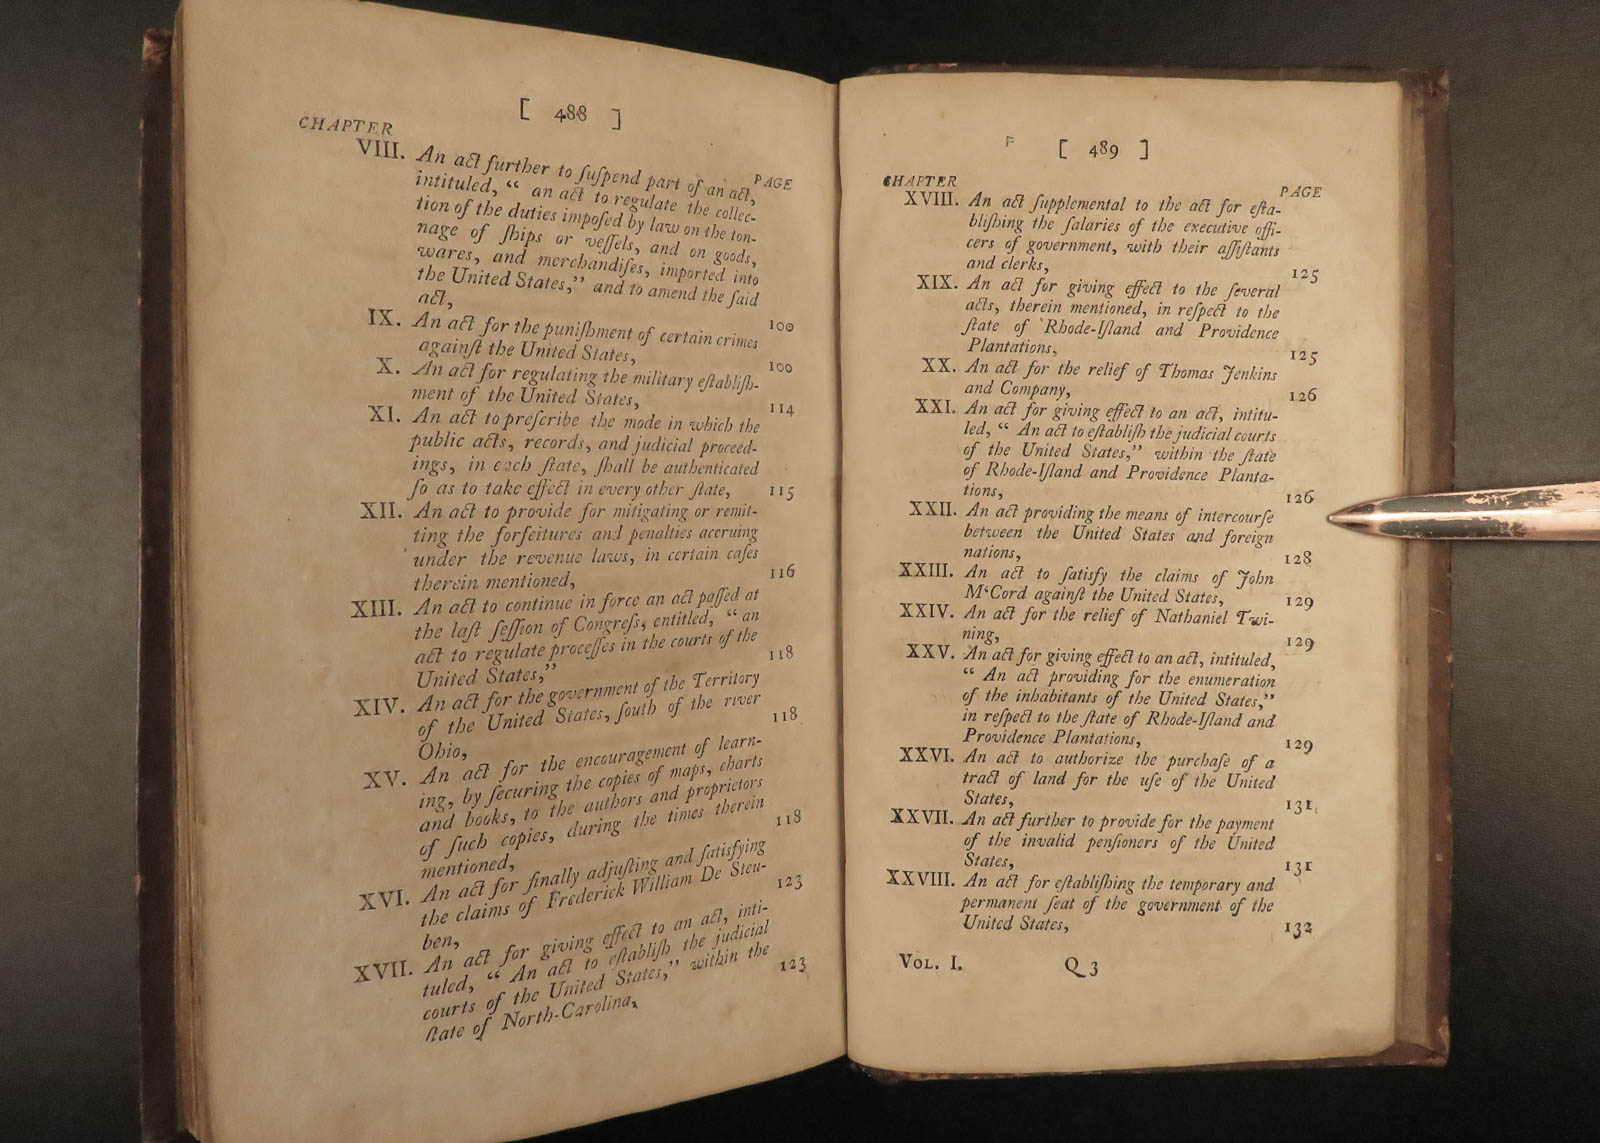 [ 488 ]
CHAPTER
PAGE
VIII. An act further to ſuſpend part of an act,
intituled, “ an act to regulate the collec-
tion of the duties impoſed by law on the ton-
nage of ſhips or veſſels, and on goods,
wares, and merchandiſes, imported into
the United States,” and to amend the ſaid
act, 100
IX. An act for the puniſhment of certain crimes
againſt the United States, 100
X. An act for regulating the military eſtabliſh-
ment of the United States, 114
XI. An act to preſcribe the mode in which the
public acts, records, and judicial proceed-
ings, in each ſtate, ſhall be authenticated
ſo as to take effect in every other ſtate, 115
XII. An act to provide for mitigating or remit-
ting the forfeitures and penalties accruing
under the revenue laws, in certain caſes
therein mentioned, 116
XIII. An act to continue in force an act paſſed at
the laſt ſeſſion of Congreſs, entitled, “ an
act to regulate proceſſes in the courts of the
United States,” 118
XIV. An act for the government of the Territory
of the United States, ſouth of the river
Ohio, 118
XV. An act for the encouragement of learn-
ing, by ſecuring the copies of maps, charts
and books, to the authors and proprietors
of ſuch copies, during the times therein
mentioned, 118
XVI. An act for finally adjuſting and ſatisfying
the claims of Frederick William De Steu-
ben, 123
XVII. An act for giving effect to an act, inti-
tuled, “ An act to eſtabliſh the judicial
courts of the United States,” within the
ſtate of North-Carolina, 123
[ 489 ]
CHAPTER
PAGE
XVIII. An act ſupplemental to the act for eſta-
bliſhing the ſalaries of the executive offi-
cers of government, with their aſſiſtants
and clerks, 125
XIX. An act for giving effect to the ſeveral
acts, therein mentioned, in reſpect to the
ſtate of Rhode-Iſland and Providence
Plantations, 125
XX. An act for the relief of Thomas Jenkins
and Company, 126
XXI. An act for giving effect to an act, intitu-
led, “ An act to eſtabliſh the judicial courts
of the United States,” within the ſtate
of Rhode-Iſland and Providence Planta-
tions, 126
XXII. An act providing the means of intercourſe
between the United States and foreign
nations, 128
XXIII. An act to ſatisfy the claims of John
M‘Cord againſt the United States, 129
XXIV. An act for the relief of Nathaniel Twi-
ning, 129
XXV. An act for giving effect to an act, intituled,
“ An act providing for the enumeration
of the inhabitants of the United States,”
in reſpect to the ſtate of Rhode-Iſland and
Providence Plantations, 129
XXVI. An act to authorize the purchaſe of a
tract of land for the uſe of the United
States, 131
XXVII. An act further to provide for the payment
of the invalid penſioners of the United
States, 131
XXVIII. An act for eſtabliſhing the temporary and
permanent ſeat of the government of the
United States, 132
VOL. I. Q 3